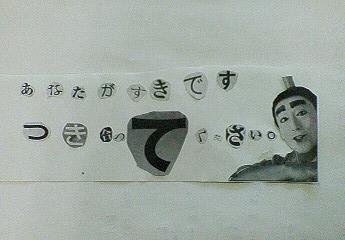 あなたがすきです
つき合ってください。